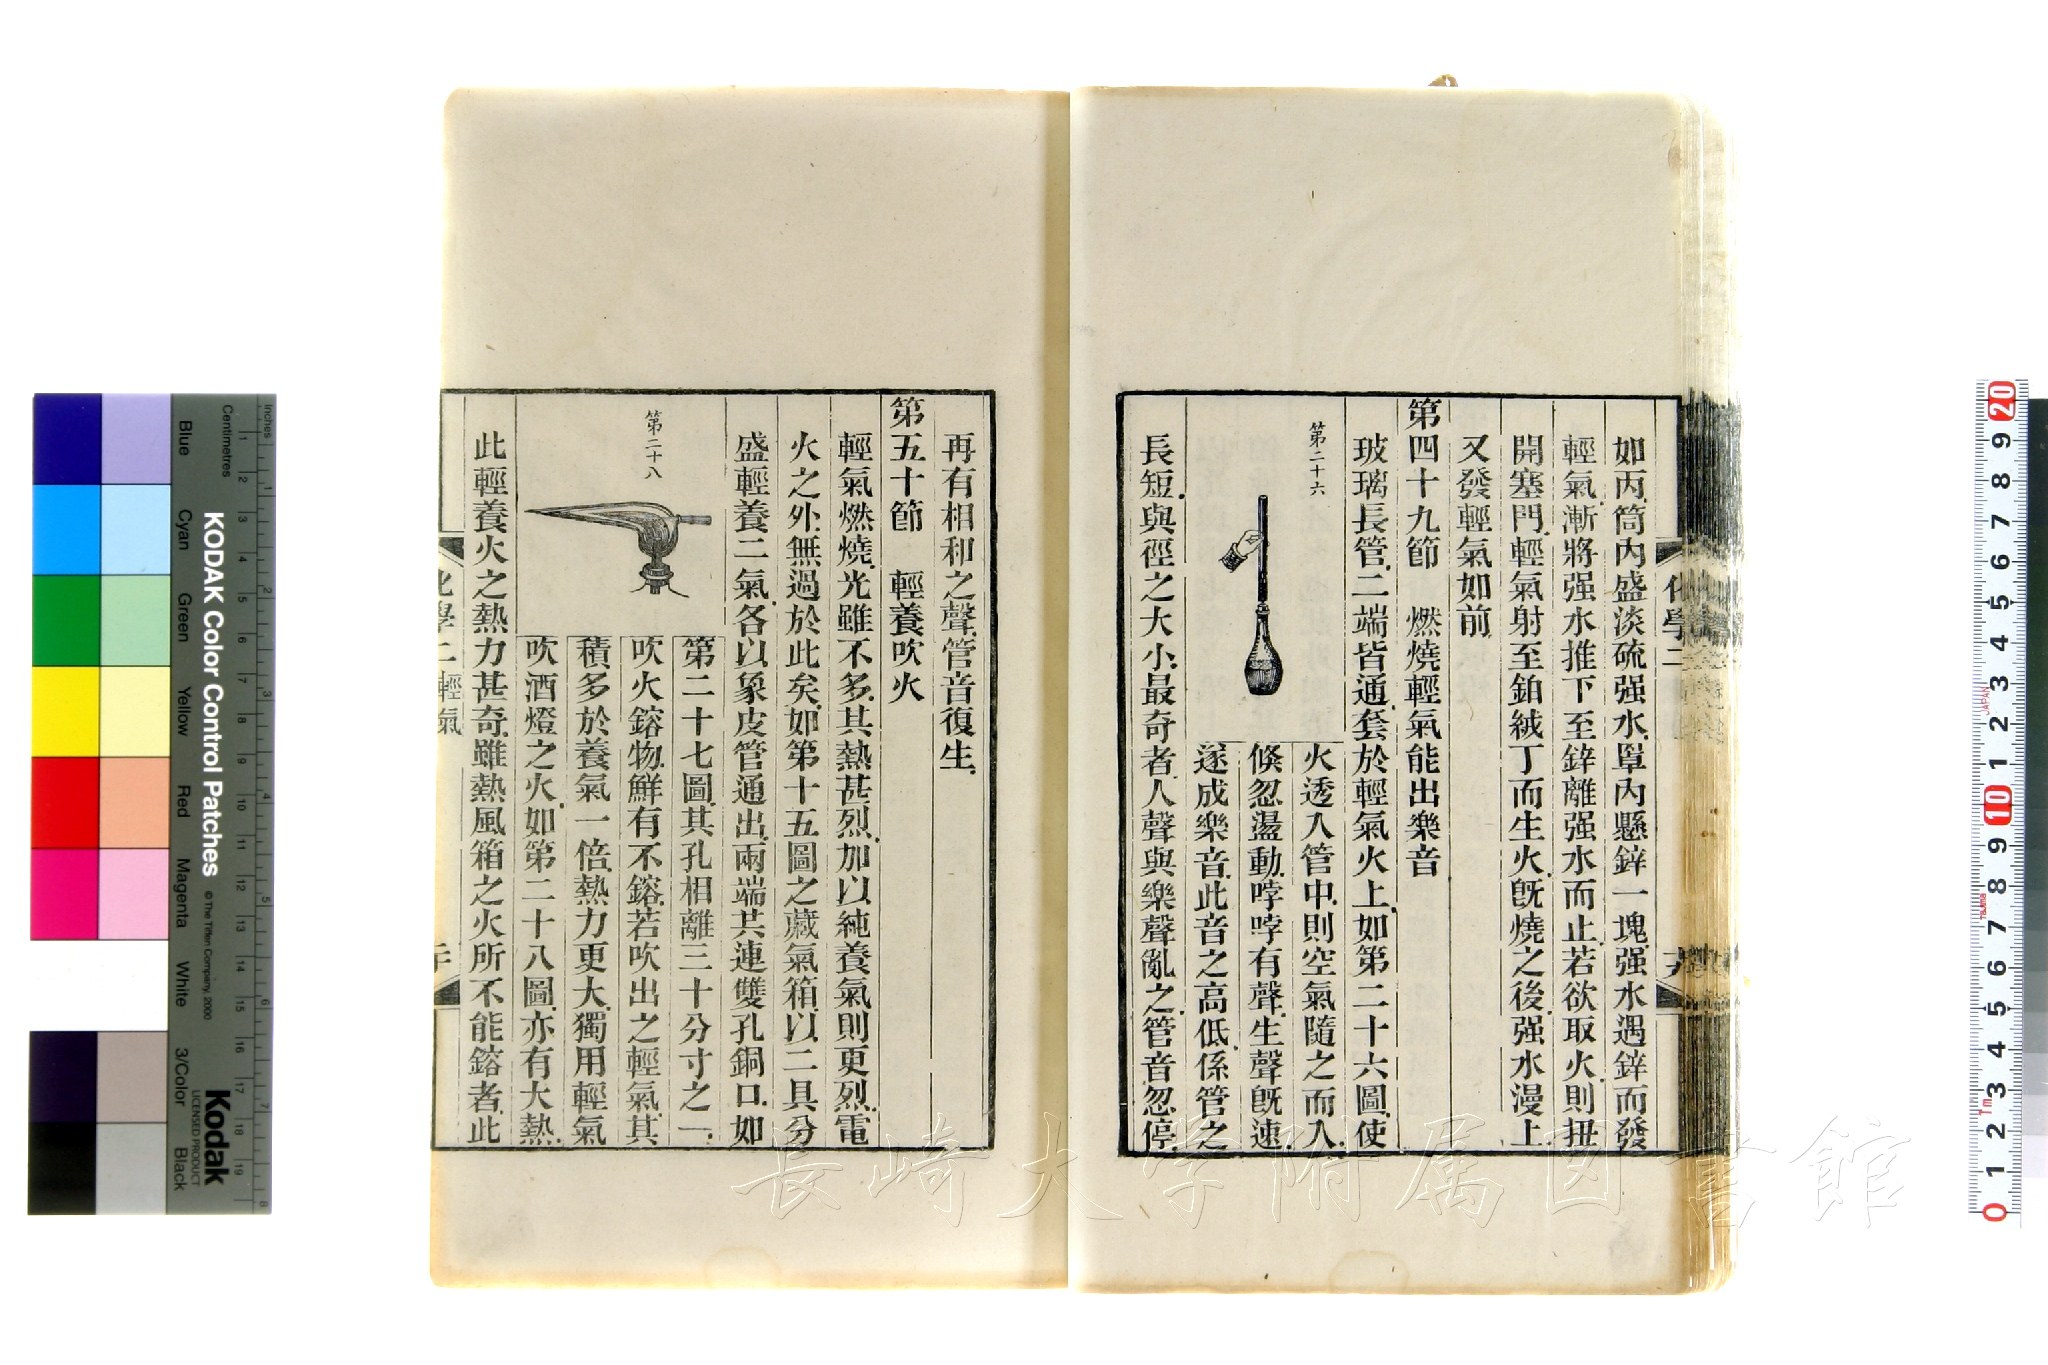 如丙筒內盛淡硫强水罩內懸鋅一塊强水遇鋅而發
輕氣漸將强水推下至鋅離强水而止若欲取火則扭
開塞門輕氣射至鉑絨丁而生火旣燒之後强水漫上
又發輕氣如前
第四十九節 燃燒輕氣能出樂音
玻璃長管二端皆通套於輕氣火上如第二十六圖使
第二十六
火透入管中則空氣隨之而入
倏忽盪動哱哱有聲生聲旣速
遂成樂音此音之高低係管之
長短與徑之大小最奇者人聲與樂聲亂之管音忽停
再有相和之聲管音復生
第五十節 輕養吹火
輕氣燃燒光雖不多其熱甚烈加以純養氣則更烈電
火之外無過於此矣如第十五圖之藏氣箱以二具分
盛輕養二氣各以象皮管通出兩端其連雙孔銅口如
第二十七圖其孔相離三十分寸之一
第二十八
吹火鎔物鮮有不鎔若吹出之輕氣其
積多於養氣一倍熱力更大獨用輕氣
吹酒燈之火如第二十八圖亦有大熱
此輕養火之熱力甚奇雖熱風箱之火所不能鎔者此
化學二 輕氣
化學二
長崎大学附属図書館
KODAK Color Control Patches
© The Tiffen Company, 2000
Kodak
LICENSED PRODUCT
Blue
Cyan
Green
Yellow
Red
Magenta
White
3/Color
Black
Inches
Centimetres
1 2 3 4 5 6 7 8
1 2 3 4 5 6 7 8 9 10 11 12 13 14 15 16 17 18 19
20 9 8 7 6 5 4 3 2 1 10 9 8 7 6 5 4 3 2 1 0
JAPAN
Tajima